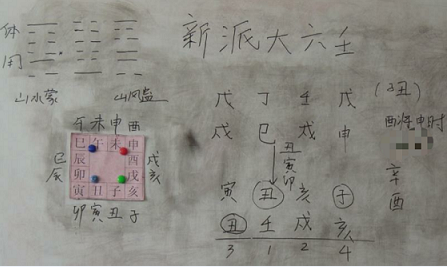 新派大六壬
体
用
山水蒙
山风蛊
戊 丁 壬 戊
戌 巳 戌 申
丑
寅
卯
寅 丑 亥 子
丑 壬 戌 亥
3 1 2 4
酉将申时
辛
酉
午未申酉
巳
辰
戌
亥
卯寅丑子
巳午未申
辰 酉
卯 戌
寅丑子亥